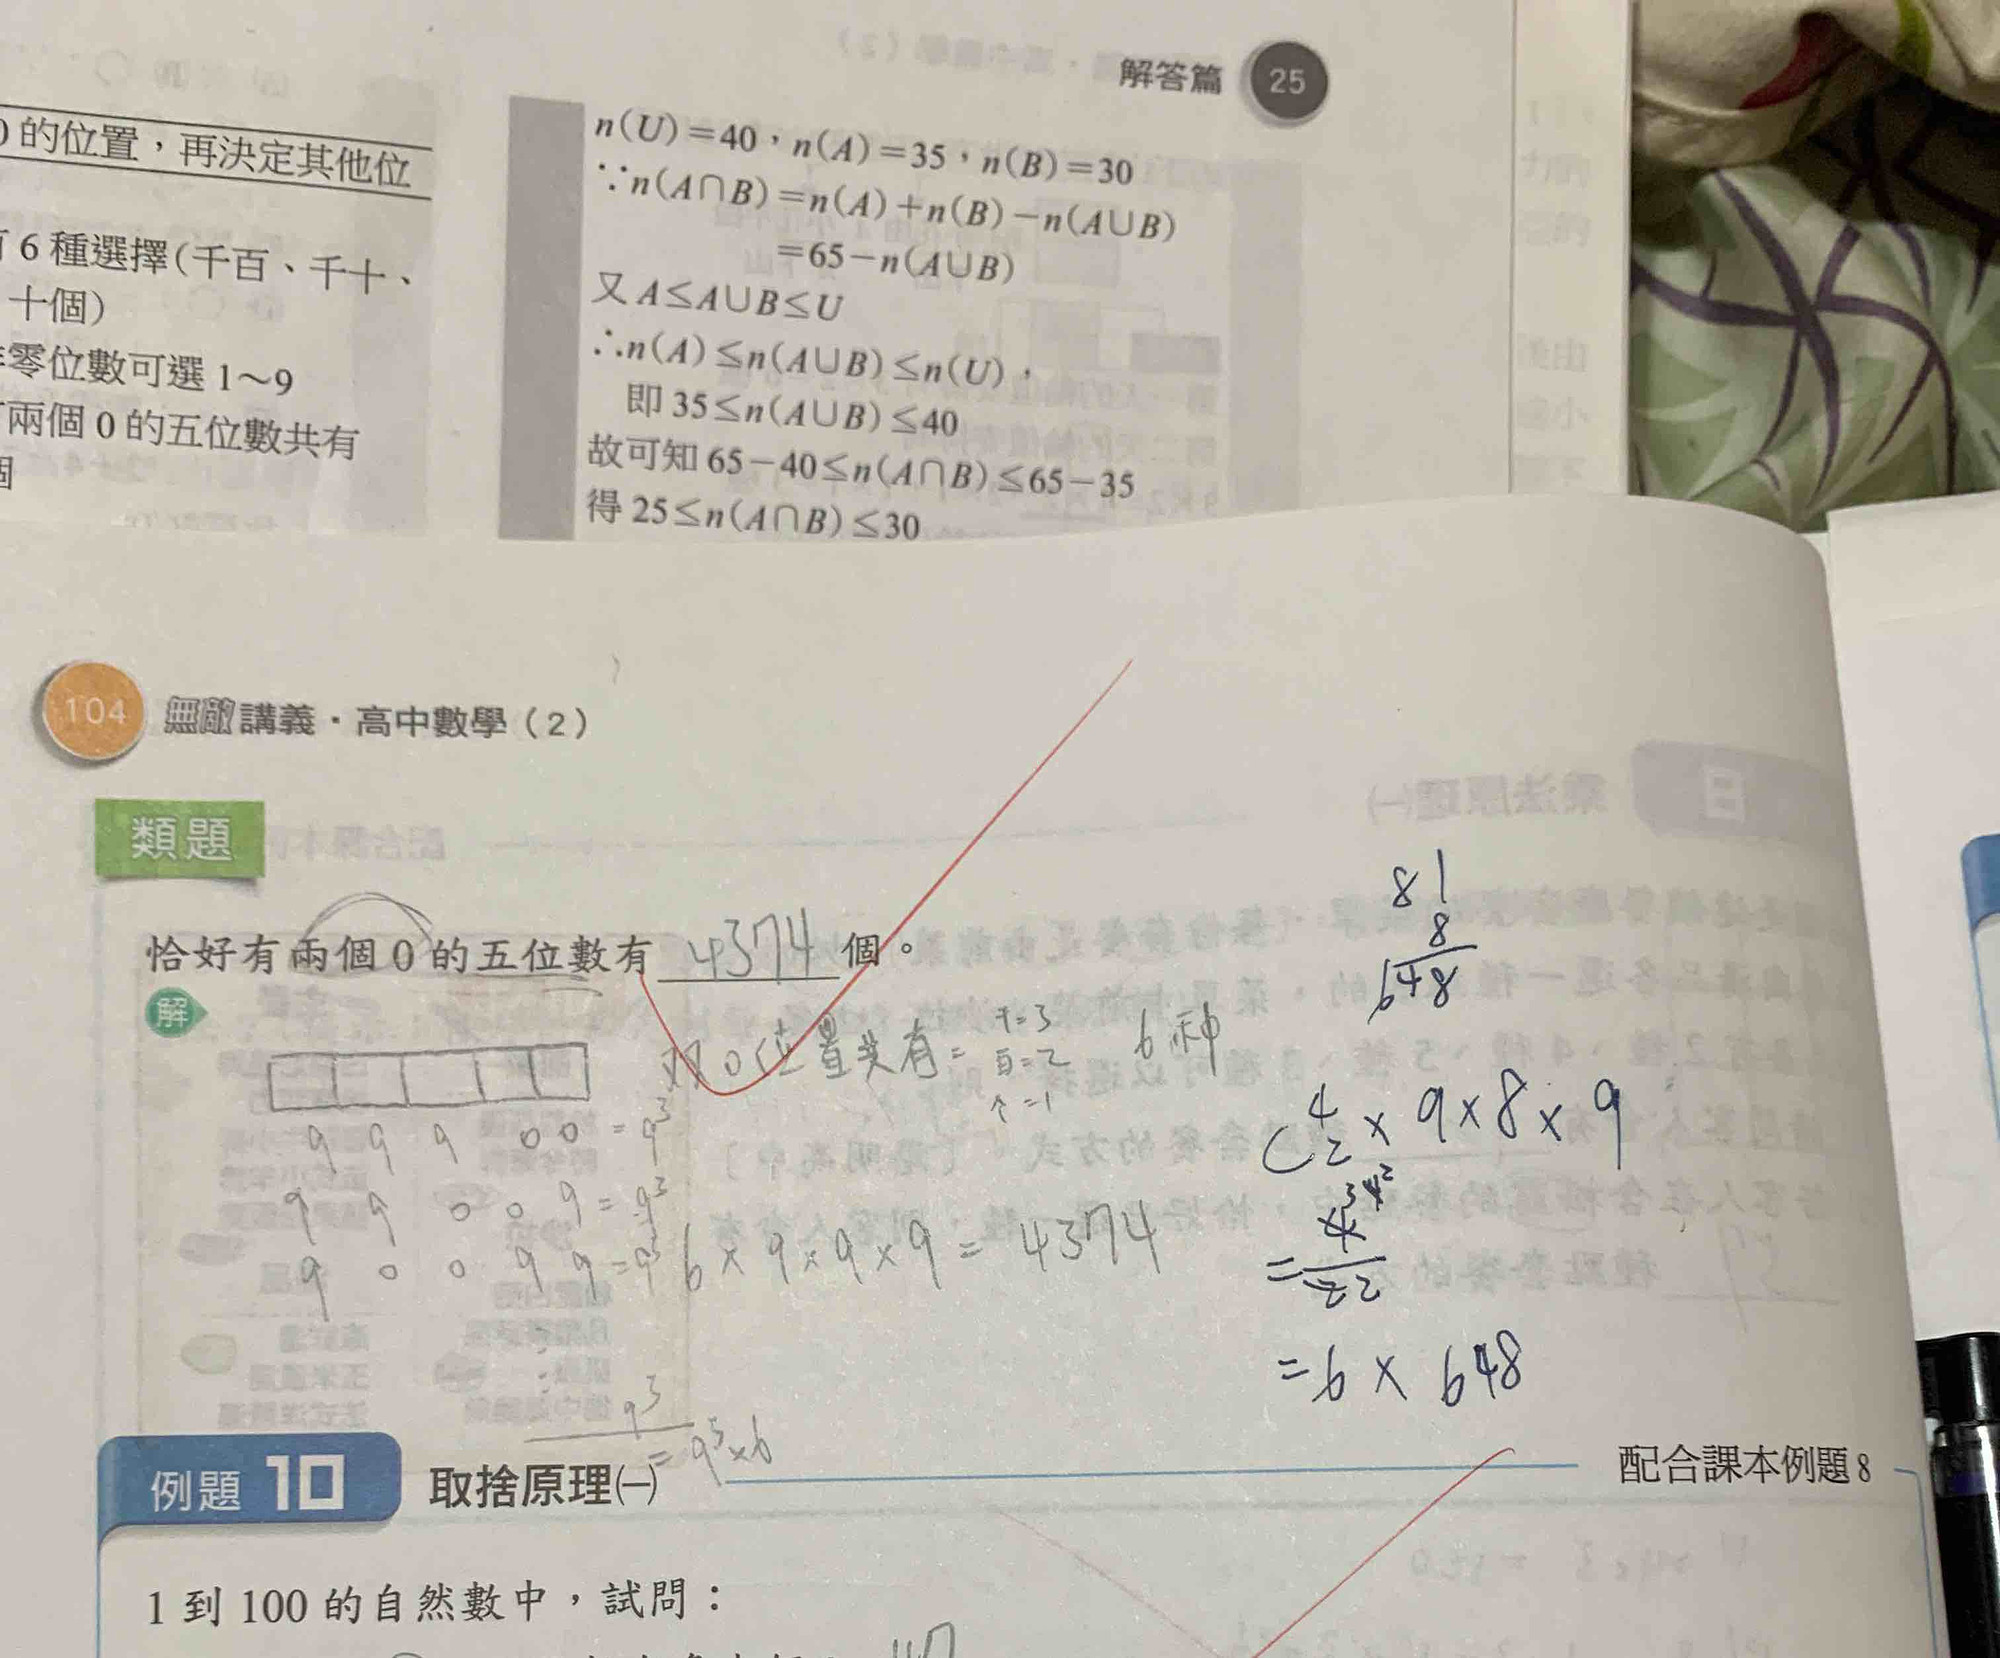 解答篇 25
0 的位置，再決定其他位
6 種選擇(千百、千十、
十個)
零位數可選 1～9
兩個 0 的五位數共有
個
n(U)=40，n(A)=35，n(B)=30
∵n(A∩B)=n(A)+n(B)-n(A∪B)
=65-n(A∪B)
又 A≤A∪B≤U
∴n(A)≤n(A∪B)≤n(U)，
即 35≤n(A∪B)≤40
故可知 65-40≤n(A∩B)≤65-35
得 25≤n(A∩B)≤30
104 無敵講義・高中數學（2）
類題
恰好有兩個 0 的五位數有 4374 個。
解
双0位置共有=
千=3
百=2
个=1
6种
9 9 9 0 0 = 9³
9 9 0 0 9 = 9³
9 0 0 9 9 = 9³
6×9×9×9=4374
9³
=9³×6
81
8
648
C⁴₂×9×8×9
=6×648
例題 10 取捨原理㈠
配合課本例題 8
1 到 100 的自然數中，試問：